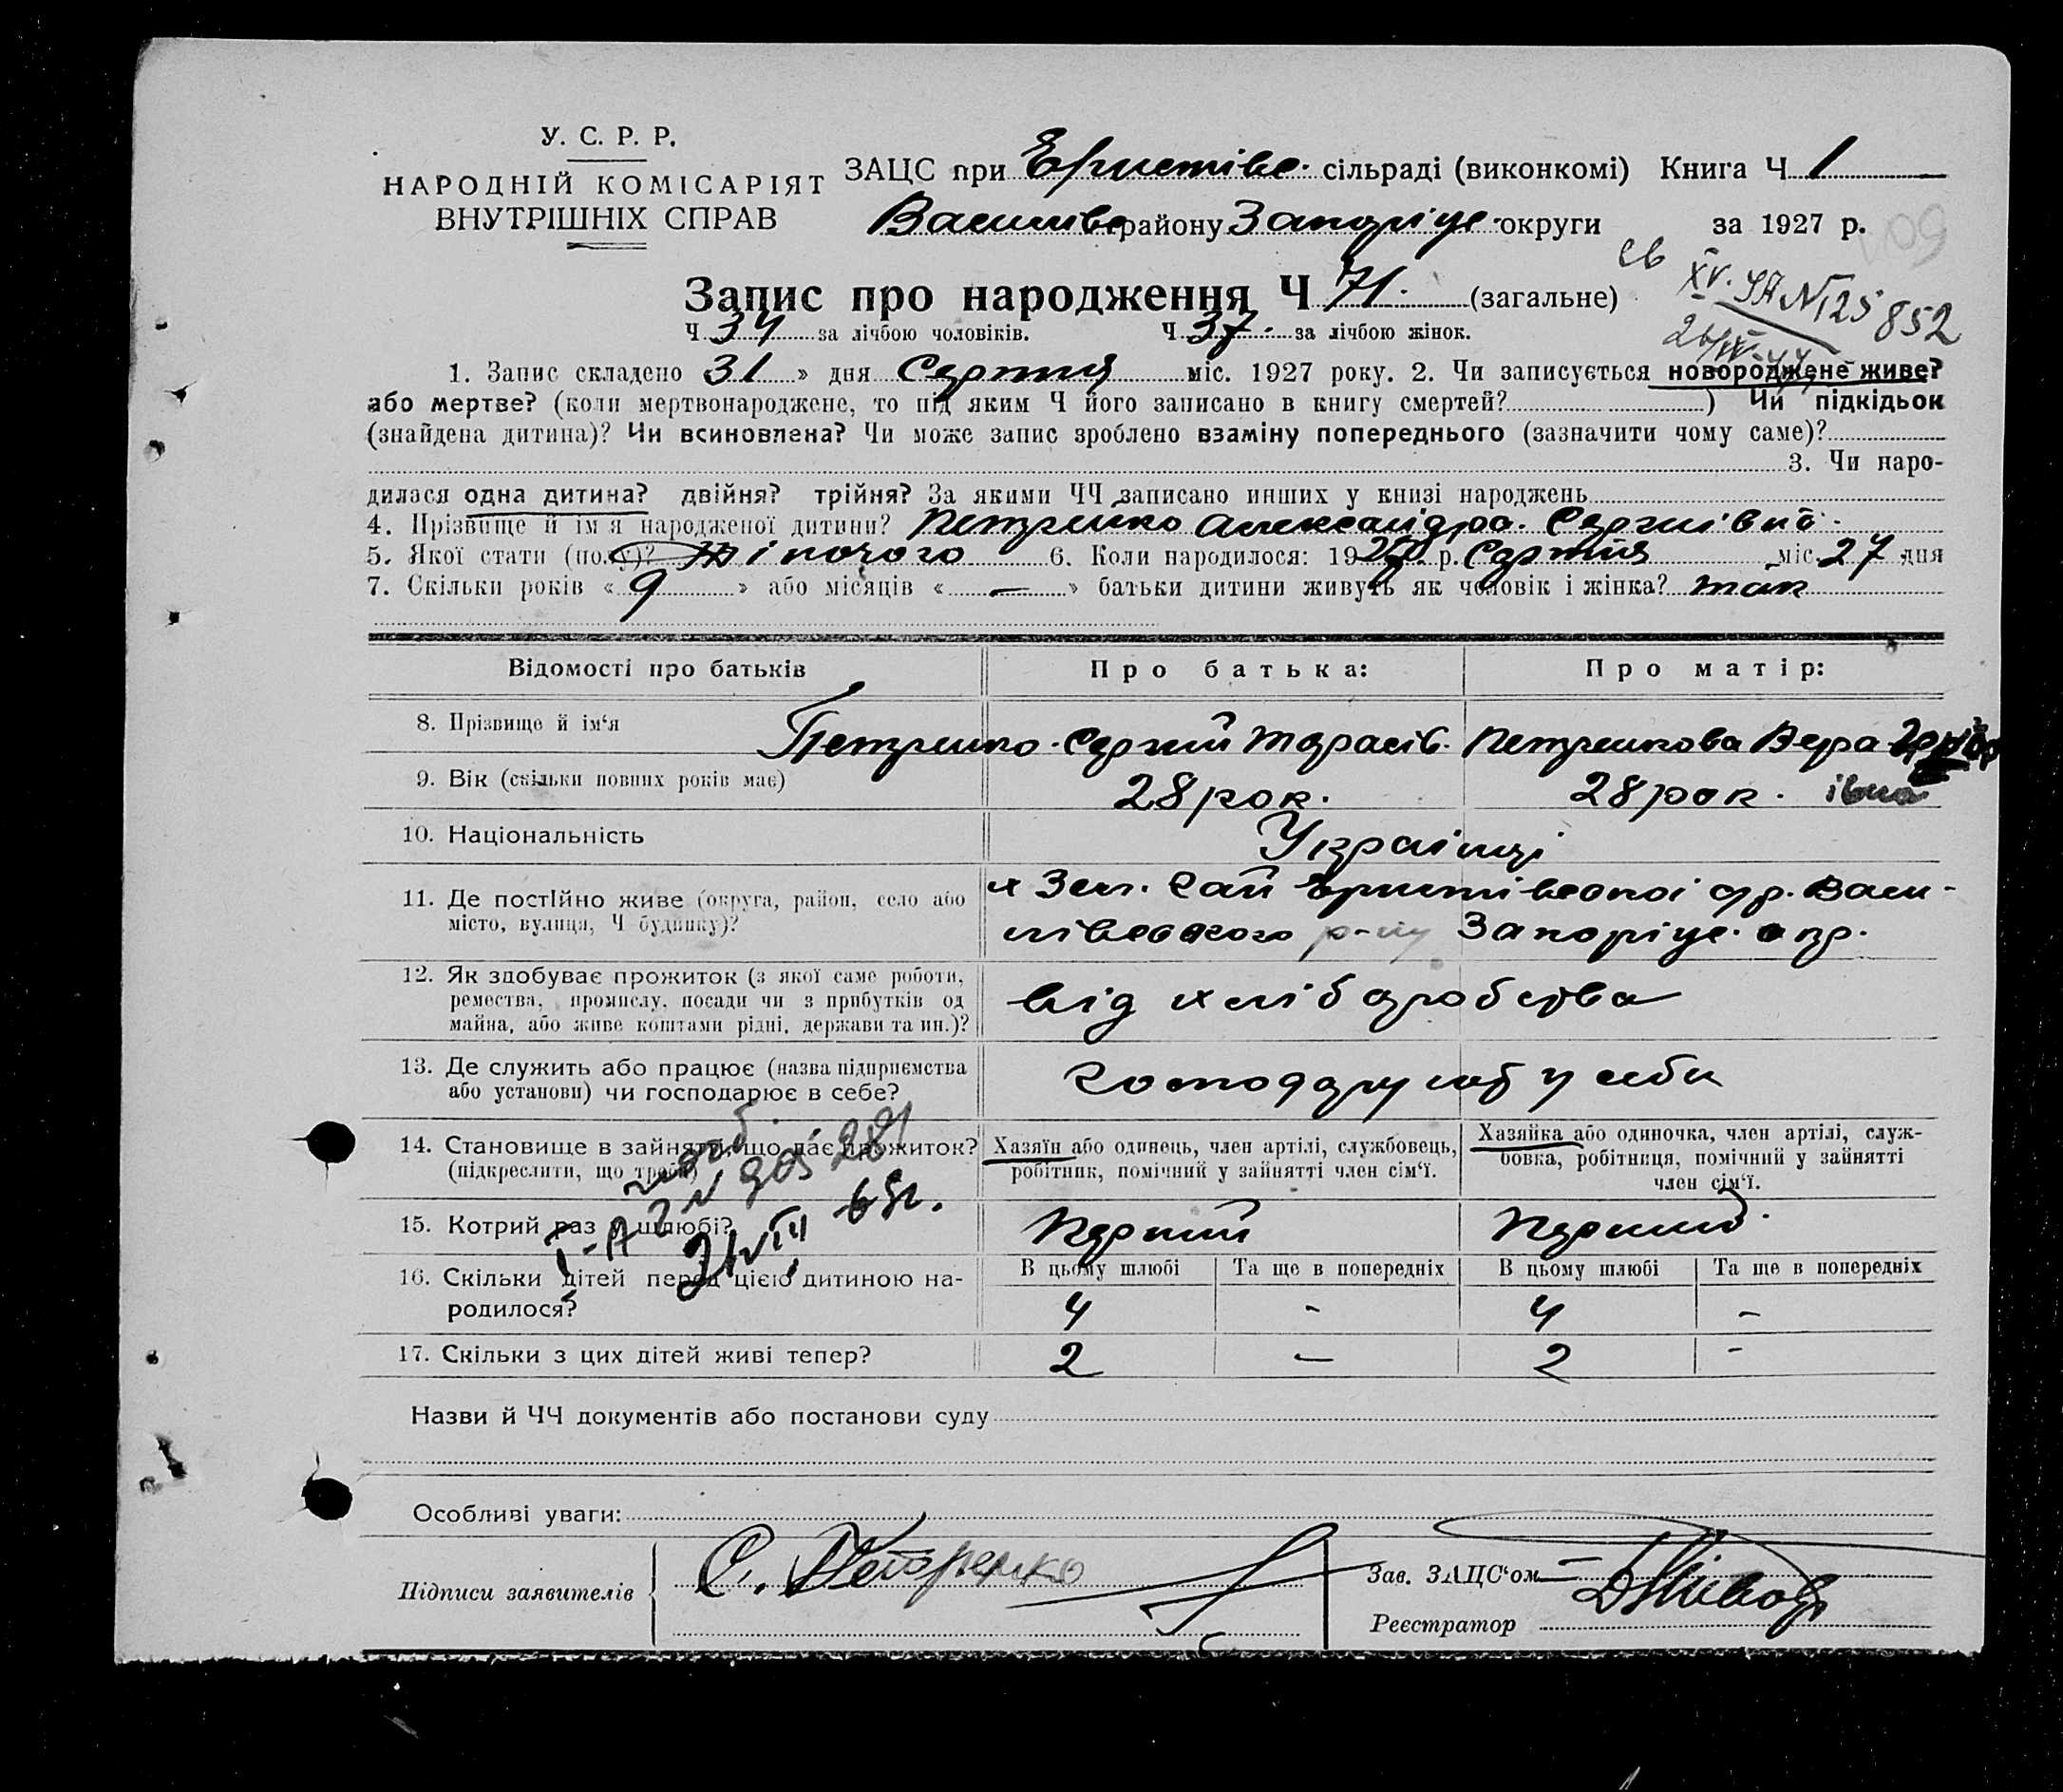 У. С. Р. Р.
НАРОДНІЙ КОМІСАРІЯТ
ВНУТРІШНІХ СПРАВ
ЗАЦС при Еристівс. сільраді (виконкомі) Книга Ч 1
Василівс району Запоріцс. округи за 1927 р.
Запис про народження Ч 71. (загальне)
XV. УА № 125852
Ч 34 за лічбою чоловіків. Ч 37. за лічбою жінок.
1. Запис складено 31 » дня Серпня міс. 1927 року. 2. Чи записується новороджене живе?
або мертве? (коли мертвонароджене, то під яким Ч його записано в книгу смертей? ) Чи підкідьок
(знайдена дитина)? Чи всиновлена? Чи може запис зроблено взаміну попереднього (зазначити чому саме)?
3. Чи наро-
дилася одна дитина? двійня? трійня? За якими ЧЧ записано инших у книзі народжень
4. Прізвище й ім'я народженої дитини? Петренко Александра. Сергиівна.
5. Якої стати (полу)? Жіночого 6. Коли народилося: 1927 р. Серпня міс. 27 дня
7. Скільки років « 9 » або місяців « — » батьки дитини живуть як чоловік і жінка? так
Відомості про батьків Про батька: Про матір:
8. Прізвище й ім'я Петренко Сергий Тарасів. Петренкова Вера
9. Вік (скільки повних років має) 28 рок. 28 рок. івна
10. Національність Українці
11. Де постійно живе (округа, район, село або х Зел. Гай Еристівської с/р. Васи-
місто, вулиця, Ч будинку)? лівського р-ну Запоріцс. окр.
12. Як здобуває прожиток (з якої саме роботи,
ремества, промислу, посади чи з прибутків од від хліборобства
майна, або живе коштами рідні, держави та ин.)?
13. Де служить або працює (назва підприємства
або установи) чи господарює в себе? господарують у себи
14. Становище в зайнятті, що дає прожиток? Хазяїн або одинець, член артілі, службовець, Хазяйка або одиночка, член артілі, служ-
(підкреслити, що треба) робітник, помічний у зайнятті член сім'ї. бовка, робітниця, помічний у зайнятті
член сім'ї.
15. Котрий раз у шлюбі? Перший Перший
16. Скільки дітей перед цією дитиною на- В цьому шлюбі Та ще в попередніх В цьому шлюбі Та ще в попередніх
родилося? 4 - 4 -
17. Скільки з цих дітей живі тепер? 2 — 2 -
Назви й ЧЧ документів або постанови суду
Особливі уваги:
Підписи заявителів С. Петренко Зав. ЗАЦС'ом
Реєстратор